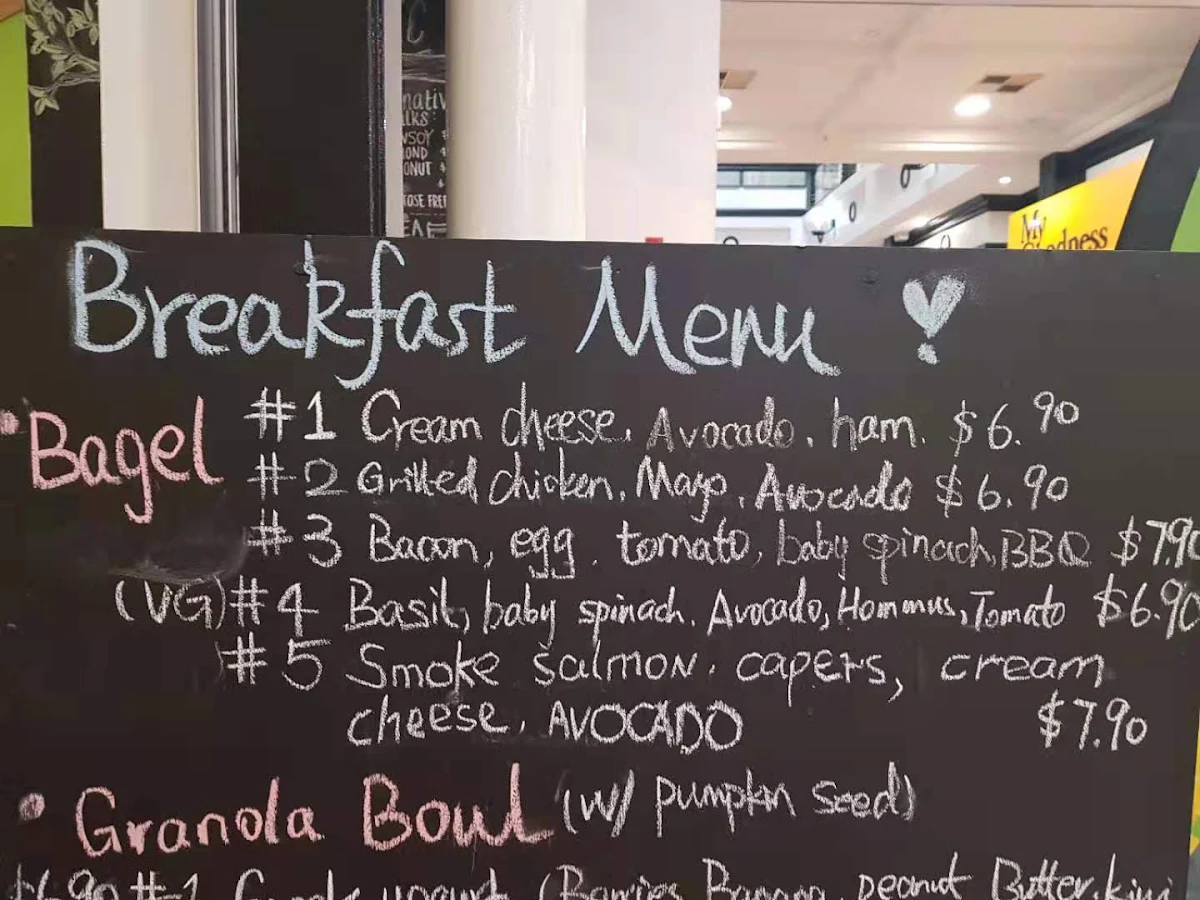 C
nativ
lks
SOY
OND
ONUT
TOSE FREE
My
Goodness
Breakfast Menu
• Bagel #1 Cream cheese, Avocado, ham. $6.90
#2 Grilled chicken, Mayo, Avocado $6.90
#3 Bacon, egg, tomato, baby spinach, BBQ $7.90
(VG) #4 Basil, baby spinach, Avocado, Hommus, Tomato $6.90
#5 Smoke salmon, capers, cream
cheese, AVOCADO $7.90
• Granola Bowl (w/ pumpkin seed)
$6.90 #1 Greek yogurt (Berries Banana, peanut Butter, kiwi